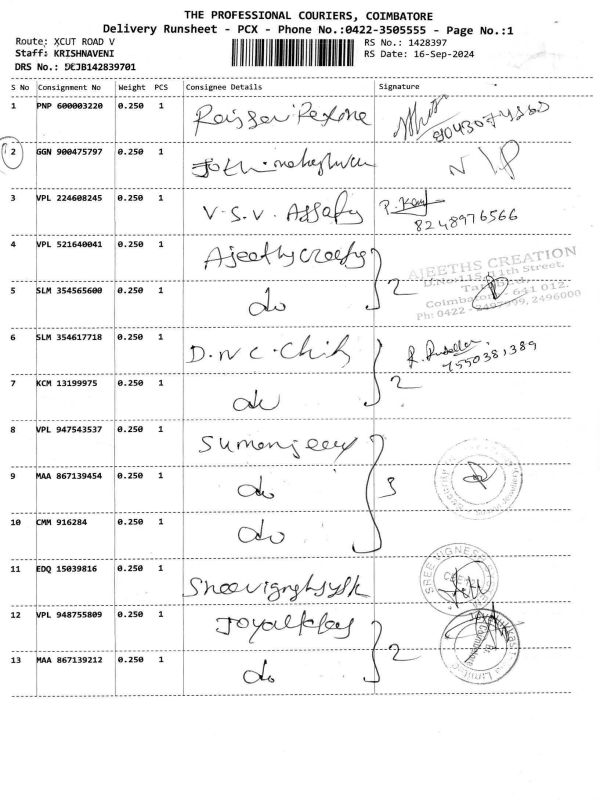 THE PROFESSIONAL COURIERS, COIMBATORE
Delivery Runsheet - PCX - Phone No.:0422-3505555 - Page No.:1
Route: XCUT ROAD V
RS No.: 1428397
Staff: KRISHNAVENI
RS Date: 16-Sep-2024
DRS No.: DEJB142839701
S No Consignment No Weight PCS Consignee Details Signature
1 PNP 600003220 0.250 1
2 GGN 900475797 0.250 1
3 VPL 224608245 0.250 1 V.S.V. P.
8248976566
4 VPL 521640041 0.250 1
AJEETHS CREATION
D.No:115, 11th Street,
Coimbatore 641 012.
Ph: 0422 - 2496000
5 SLM 354565600 0.250 1 do 2
6 SLM 354617718 0.250 1 D.N.C. R.
7550381389
7 KCM 13199975 0.250 1 do 2
8 VPL 947543537 0.250 1
9 MAA 867139454 0.250 1 do 3
10 CMM 916284 0.250 1 do
11 EDQ 15039816 0.250 1 SREE
12 VPL 948755809 0.250 1
13 MAA 867139212 0.250 1 do 2